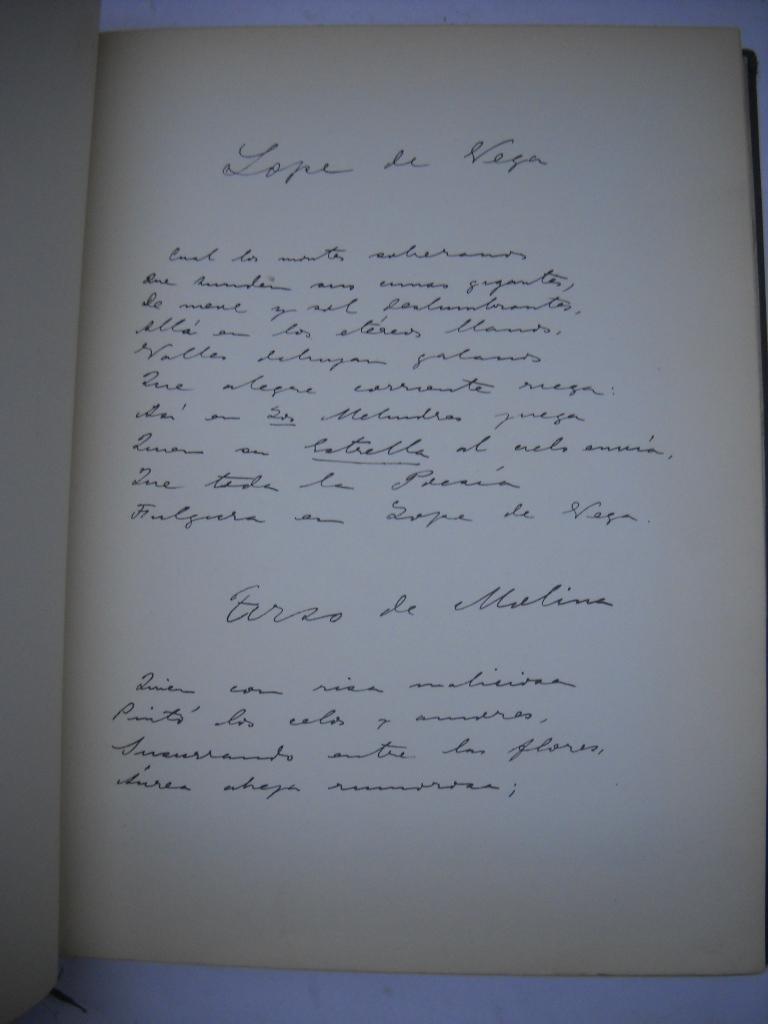 Lope de Vega
Cual los montes soberanos
Que hunden sus cimas gigantes,
De nieve y sol deslumbrantes,
Allá en los etéreos llanos,
Valles dibujan galanos
Que alegre corriente riega:
Así en Los Melindres juega
Quien su Estrella al cielo envía,
Que toda la Poesía
Fulgura en Lope de Vega.
Tirso de Molina
Quien con risa maliciosa
Pintó los celos y amores,
Susurrando entre las flores,
Áurea abeja rumorosa;